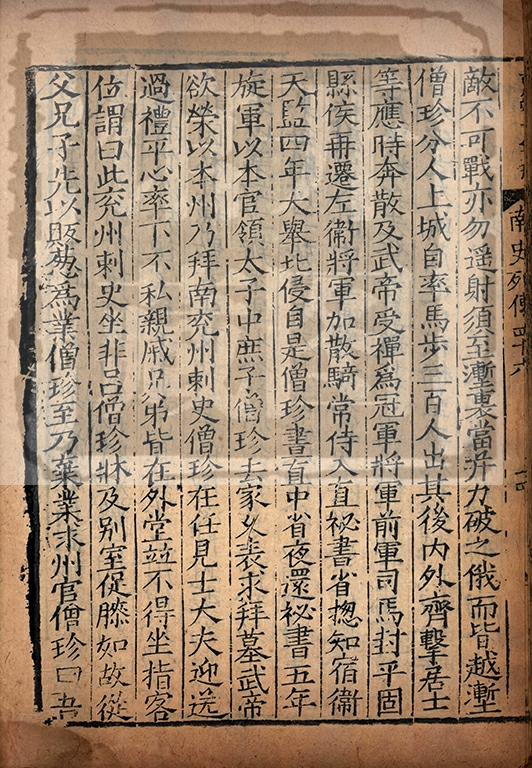 敵不可戰亦勿遥射須至塹裏當并力破之俄而皆越塹
僧珍分人上城自率馬步三百人出其後内外齊擊居士
等應時奔散及武帝受禪爲冠軍將軍前軍司馬封平固
縣侯再遷左衞將軍加散騎常侍入直祕書省揔知宿衞
天監四年大舉北侵自是僧珍晝直中省夜還祕書五年
旋軍以本官領太子中庶子僧珍去家久表求拜墓武帝
欲榮以本州乃拜南兖州刺史僧珍在任見士大夫迎送
過禮平心率下不私親戚兄弟皆在外堂並不得坐指客
位謂曰此兖州刺史坐非吕僧珍牀及别室促膝如故從
父兄子先以販葱爲業僧珍至乃棄業求州官僧珍曰吾
南史列傳四十六